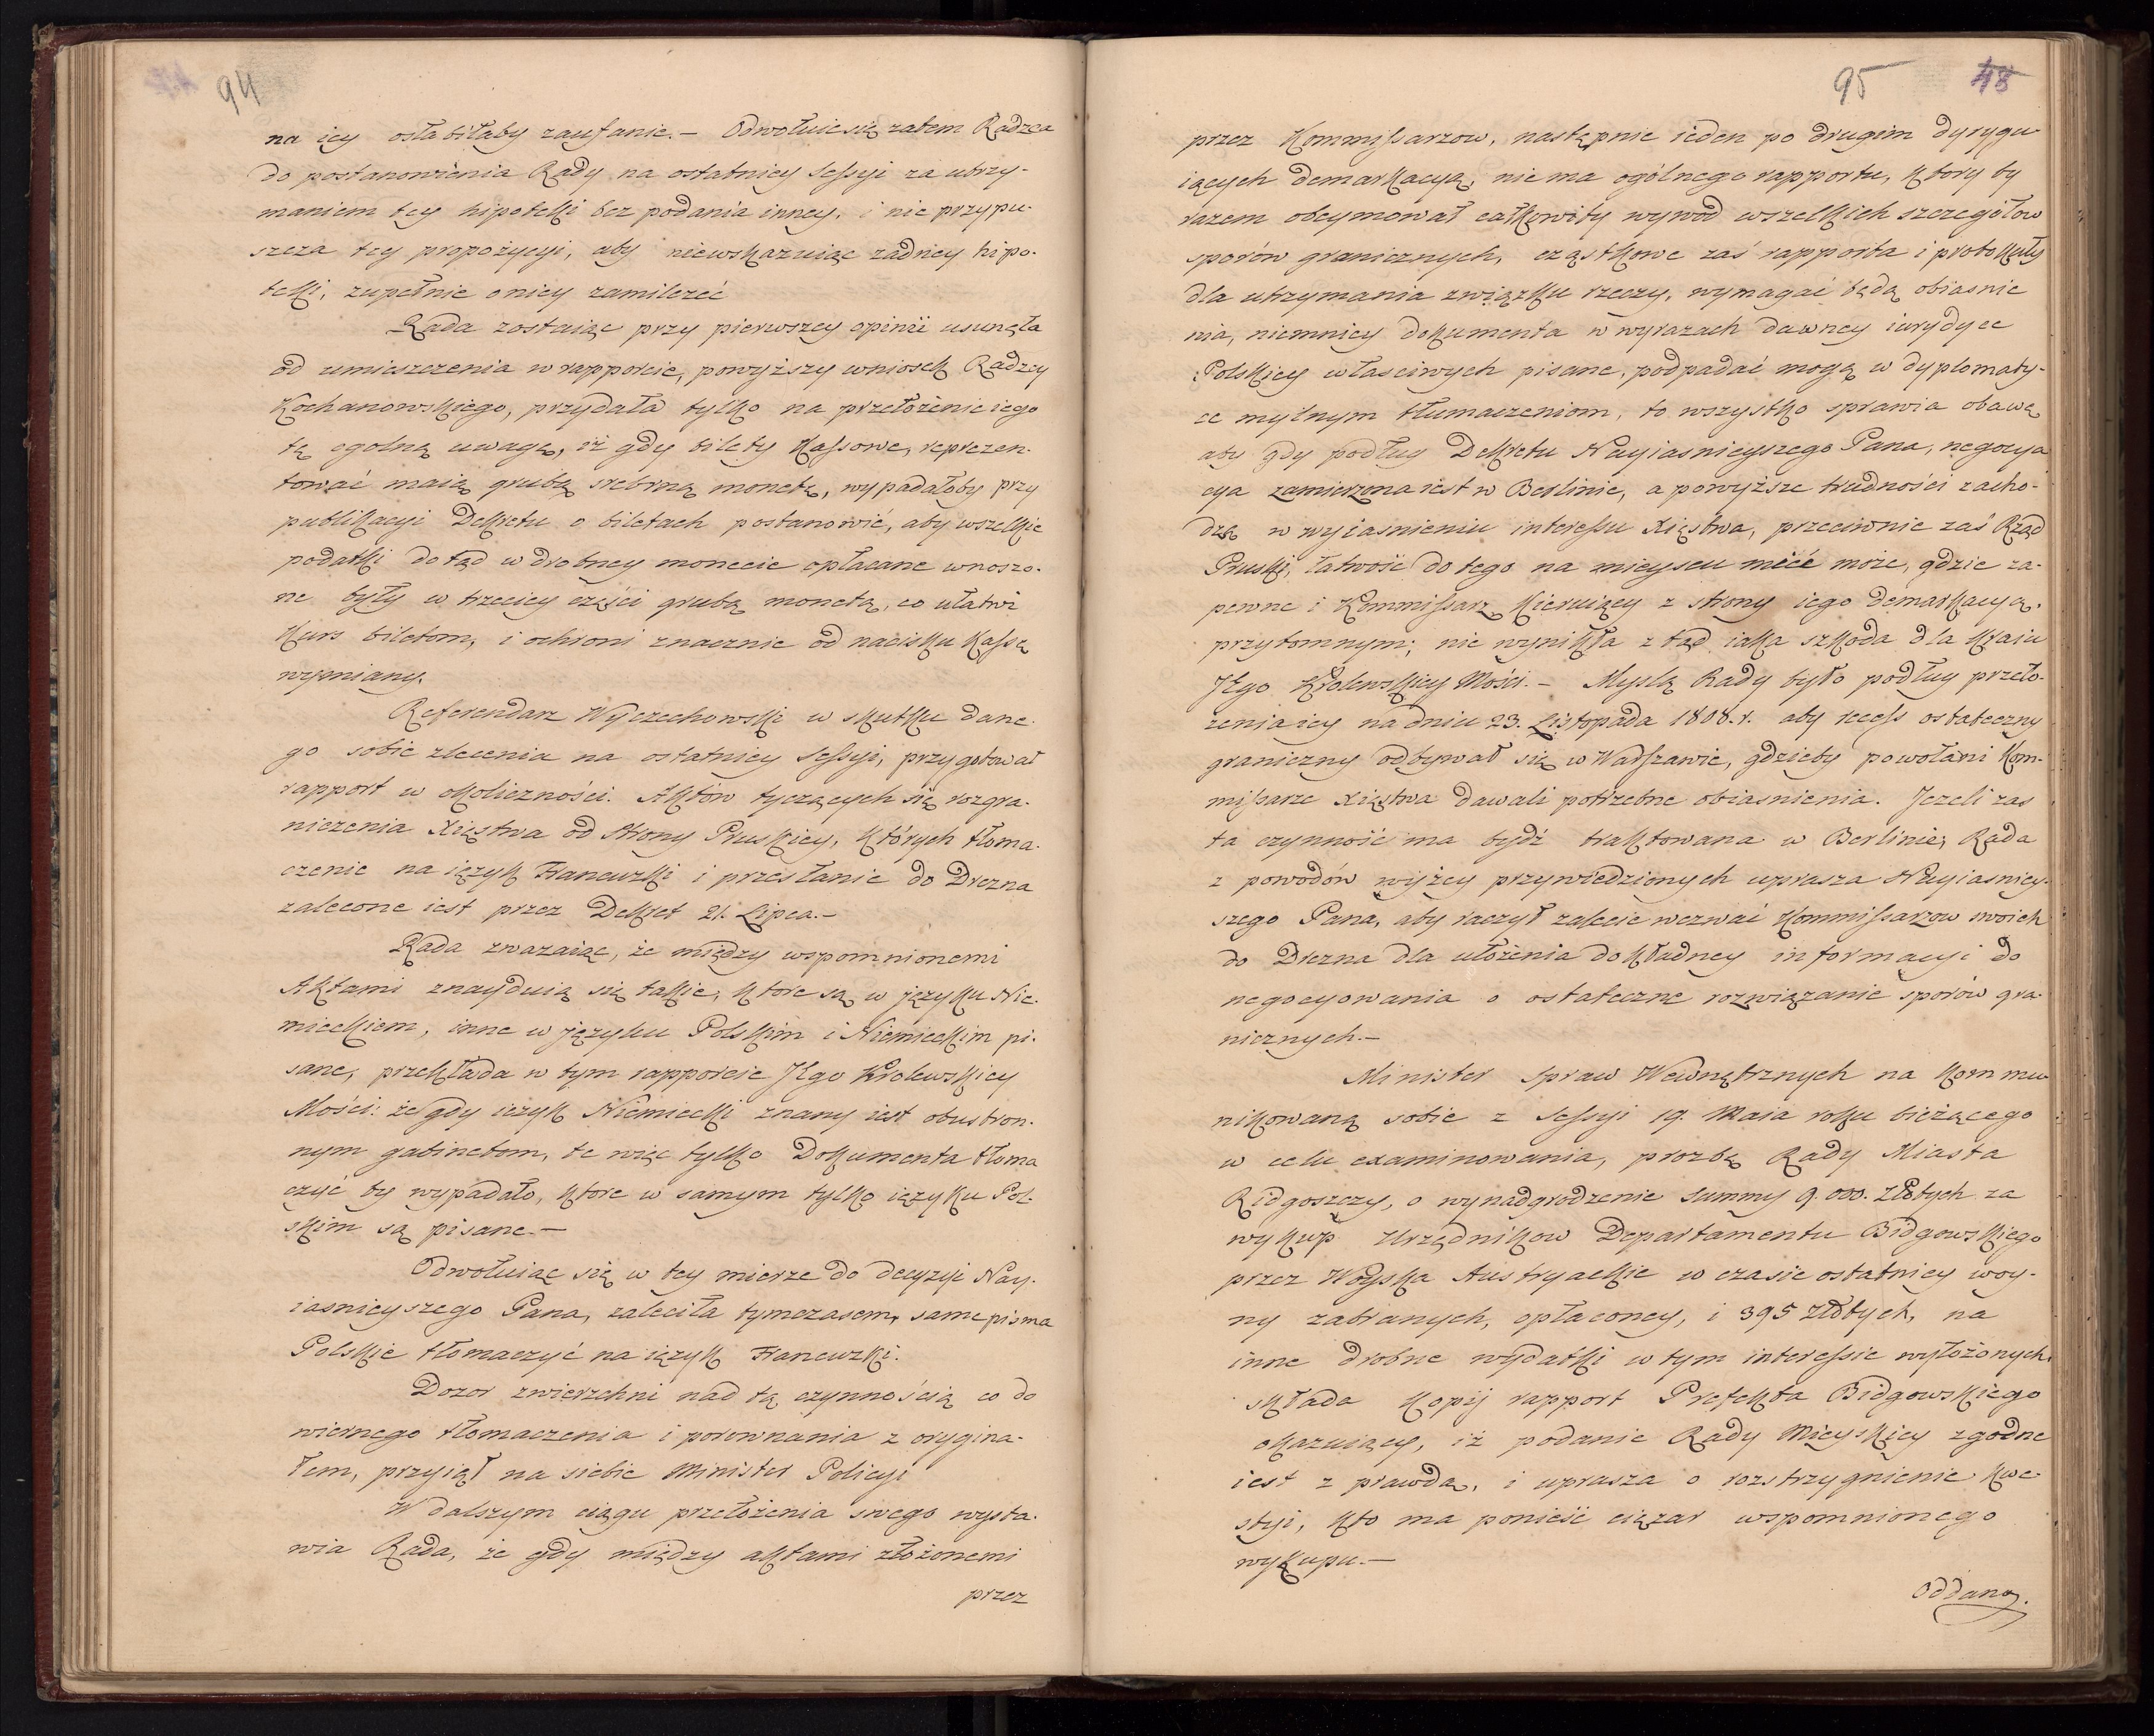 94
na iey osłabiłaby zaufanie. – Odwołuie się zatem Radzca
do postanowienia Rady na ostatniey Sessyi za utrzy-
maniem tey hipoteki bez podania inney, i nie przypu-
szcza tey propożycyi, aby niewskazuiąc żadney hipo-
teki, zupełnie o niey zamilczeć
Rada zostaiąc przy pierwszey opinii usunęła
od umieszczenia w rapporcie, powyższy wniosek Radzcy
Kochanowskiego, przydała tylko na przełożenie iego
tę ogolną uwagę, iż gdy bilety Kassowe, reprezen-
tować maią grubą srebrną monetę, wypadałoby przy
publikacyi Dekretu o biletach postanowić, aby wszelkie
podatki dotąd w drobney monecie opłacane wnoszo-
ne były w trzeciey części grubą monetą, co ułatwi
Kurs biletom, i ochroni znacznie od nacisku Kassę
wymiany.
Referendarz Wyczechowski w skutku dane-
go sobie zlecenia na ostatniey Sessyi, przygotował
rapport w okoliczności. Aktów tyczących się rozgra-
niczenia Xięstwa od Strony Pruskiey, których tłoma-
czenie na ięzyk Francuzki i przesłanie do Drezna
zalecone iest przez Dekret 21. Lipca. –
Rada zwazaiąc, że między wspomnionemi
Aktami znayduią się takie, ktore są w języku Nie-
mieckiem, inne w języku Polskim i Niemieckim pi-
sane, przekłada w tym rapporcie JKgo Krolewskiey
Mości: że gdy ięzyk Niemiecki znany iest obustron-
nym gabinetom, te więc tylko Dokumenta tłoma
czyć by wypadało, ktore w samym tylko ięzyku Pol-
skim są pisane. –
Odwołuiąc się w tey mierze do decyzyi Nay-
iasnieyszego Pana, zaleciła tymczasem, same pisma
Polskie tłomaczyć na ięzyk Francuzki.
Dozor zwierzchni nad tą czynnością co do
wiernego tłomaczenia i porownania z orygina-
łem, przyiął na siebie Minister Policyi
W dalszym ciągu przełożenia swego wysta-
wia Rada, że gdy między aktami złożonemi
przez
95 48
przez Kommissarzow, następnie ieden po drugim dyrygu-
iących demarkacyą, nie ma ogólnego rapportu, ktory by
razem obeymował całkowity wywod wszelkich szczegółow
sporów granicznych, cząstkowe zaś rapporta i protokuły
dla utrzymania związku rzeczy, wymagać będą obiasnie
nia, niemniey dokumenta w wyrazach dawney iurydyce
Polskiey własciwych pisane, podpadać mogą w dyplomaty-
ce mylnym tłumaczeniom, to wszystko sprawia obawę
aby gdy podług Dekretu Nayiasnieyszego Pana, negocya
cya zamierzona iest w Berlinie, a powyższe trudności zacho-
dzą w wyiasnieniu interessu Xięstwa, przeciwnie zaś Rząd
Pruski, łatwość do tego na mieyscu mieć może, gdzie za-
pewne i Kommissarz kieruiący z strony iego demarkacyą,
przytomnym; nie wynikła z tąd iaka szkoda dla Kraiu
JKgo Krolewskiey Mości. – Myslą Rady było podług przeło-
żenia iey na dniu 23. Listopada 1808. r. aby recess ostateczny
graniczny odbywał się w Warszawie, gdzieby powołani Kom-
missarze Xięstwa dawali potrzebne obiasnienia. Jeżeli zas
ta czynność ma bydź traktowana w Berlinie, Rada
z powodów wyżey przywiedzionych uprasza Nayiasniey-
szego Pana, aby raczył zalecie wezwać Kommissarzow swoich
do Drezna dla ułożenia dokładney informacyi do
negocyowania o ostateczne rozwiązanie sporów gra-
nicznych. –
Minister spraw Wewnętrznych na kommu-
nikowaną sobie z Sessyi 19. Maia roku bieżącego
w celu examinowania, prozbę Rady Miasta
Bidgoszczy, o wynadgrodzenie Summy 9.000. Złotych za
wykup Urzędnikow Departamentu Bidgowskiego
przez Woyska Austryackie w czasie ostatniey woy-
ny zabranych, opłaconey, i 395 złotych, na
inne drobne wydatki w tym interessie wyłożonych,
składa Kopij rapport Prefekta Bidgowskiego
okazuiący, iż podanie Rady Mieyskiey zgodne
iest z prawdą, i uprasza o rozstrzygnienie kwe-
styi, kto ma ponieść ciężar wspomnionego
wykupu. –
Oddano.